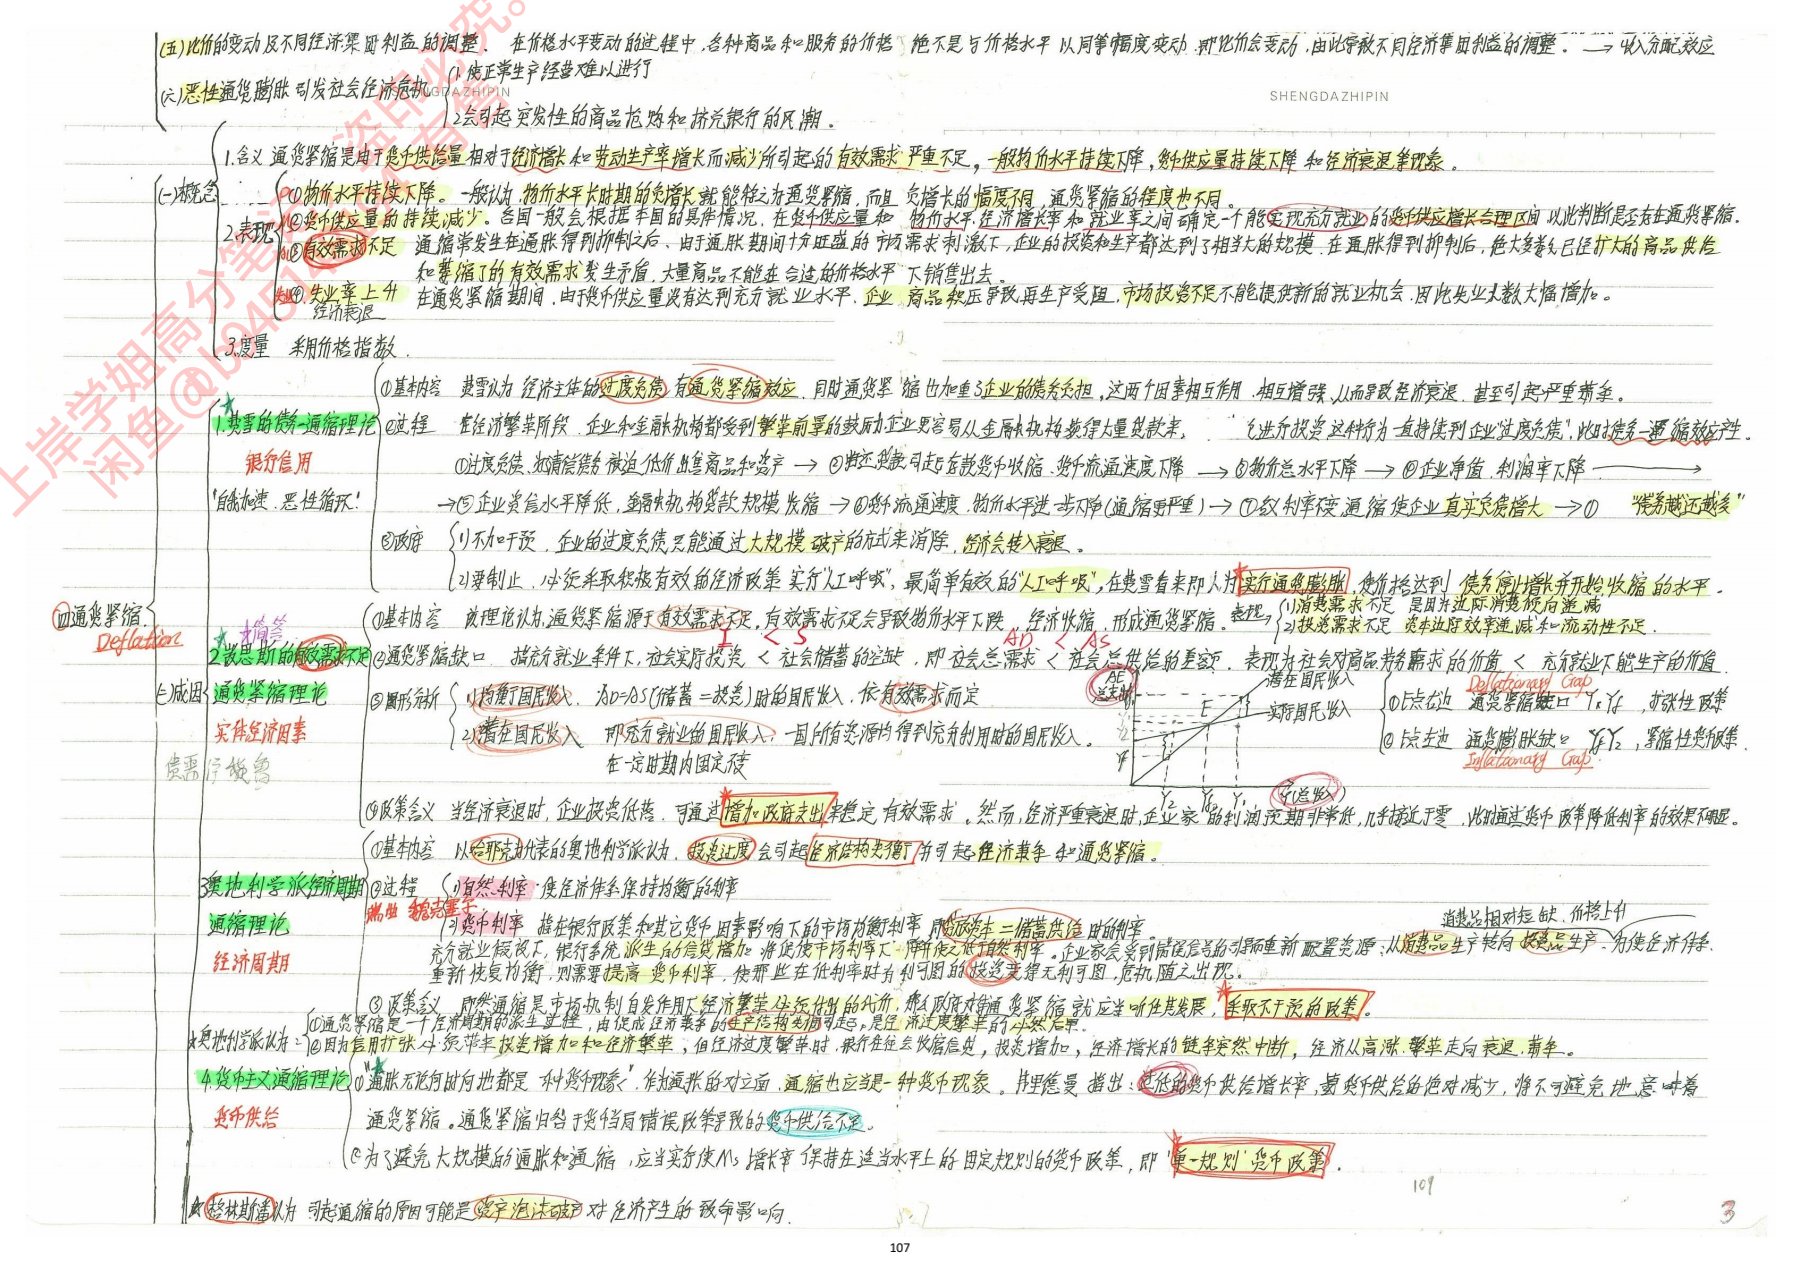 (五)比价的变动及不同经济集团利益的调整. 在价格水平变动的过程中,各种商品和服务的价格 绝不是与价格水平以同等幅度变动,即比价会变动,由此导致不同经济集团利益的调整。→收入分配效应
(六)恶性通货膨胀引发社会经济危机
1.使正常生产经营难以进行
2.会引起突发性的商品抢购和挤兑银行的风潮。
SHENGDAZHIPIN
SHENGDAZHIPIN
四通货紧缩.
Deflation
(一)概念
1.含义 通货紧缩是由于货币供给量相对于经济增长和劳动生产率增长而减少所引起的有效需求严重不足,一般物价水平持续下降,货币供应量持续下降和经济衰退等现象。
2.表现
①物价水平持续下降。一般认为,物价水平长时期的负增长就能称之为通货紧缩,而且负增长的幅度不同,通货紧缩的程度也不同。
②货币供应量的持续减少。各国一般会根据本国的具体情况,在货币供应量和物价水平、经济增长率和就业率之间确定一个能实现充分就业的货币供应增长合理区间以此判断是否存在通货紧缩.
③有效需求不足 通缩常发生在通胀得到抑制之后、由于通胀期间十分旺盛的市场需求刺激下,企业的投资和生产都达到了相当大的规模,在通胀得到抑制后,绝大多数已经扩大的商品供给
和紧缩了的有效需求发生矛盾,大量商品不能在合适的价格水平下销售出去。
④失业率上升 在通货紧缩期间,由于货币供应量没有达到充分就业水平,企业商品积压导致再生产受阻,市场投资不足不能提供新的就业机会,因此失业人数大幅增加。
经济衰退
3.度量 采用价格指数.
(二)成因
1.费雪的债务-通缩理论
银行信用
"自我加速、恶性循环"
①基本内容 费雪认为经济主体的过度负债有通货紧缩效应,同时通货紧缩也加重了企业的债务负担,这两个因素相互作用、相互增强,从而导致经济衰退,甚至引起严重萧条。
②过程 在经济繁荣阶段,企业和金融机构都受到繁荣前景的鼓励,企业更容易从金融机构获得大量贷款来 进行投资,这种行为一直持续到企业"过度负债",此时债务-通缩效应产生.
①过度负债、为清偿债务被迫低价出售商品和资产→②偿还贷款引起存款货币收缩、货币流通速度下降→③物价总水平下降→④企业净值、利润率下降→
→⑤企业资信水平降低,金融机构贷款规模收缩→⑥货币流通速度、物价水平进一步下降(通缩更严重)→⑦名义利率不变,通缩使企业真实负债增大→① "债务越还越多"
③政府
1)不加干预,企业的过度负债只能通过大规模破产的方式来消除,经济会转入衰退。
2)要制止,必须采取积极有效的经济政策实行"人工呼吸",最简单有效的"人工呼吸",在费雪看来即人为实行通货膨胀,使价格达到使债务停止增长并开始收缩的水平.
2.凯恩斯的有效需求不足
通货紧缩理论
实体经济因素
★简答
①基本内容 该理论认为,通货紧缩源于有效需求不足,有效需求不足会导致物价水平下跌、经济收缩,形成通货紧缩。表现
1)消费需求不足 是因为边际消费倾向递减
2)投资需求不足 资本边际效率递减和流动性不足.
I < S
AD < AS
②通货紧缩缺口 指充分就业条件下,社会实际投资 < 社会储蓄的空缺,即社会总需求 < 社会总供给的差额,表现为社会对商品劳务需求的价值 < 充分就业下能生产的价值
③图形分析
1)均衡国民收入 AD=AS(储蓄=投资)时的国民收入,依有效需求而定
2)潜在国民收入 即充分就业的国民收入,一国所有资源均得到充分利用时的国民收入。
在一定时期内固定不变
AE
总支出
潜在国民收入
实际国民收入
E
Y2 Yf Y1
Y(总收入)
Deflationary Gap
①E点右边 通货紧缩缺口 Y1Yf ,扩张性政策
②E点左边 通货膨胀缺口 YfY2,紧缩性货币政策.
Inflationary Gap
④政策含义 当经济衰退时,企业投资低落,可通过增加政府支出来稳定有效需求。然而,经济严重衰退时,企业家的利润预期非常低,几乎接近于零,此时通过货币政策降低利率的效果不明显。
3.奥地利学派经济周期
通缩理论
经济周期
①基本内容 以哈耶克为代表的奥地利学派认为,投资过度会引起经济结构失衡,并引起经济萧条和通货紧缩。
②过程
瑞典 魏克塞尔
1)自然利率:使经济体系保持均衡的利率
2)货币利率 指在银行政策和其它货币因素影响下的市场均衡利率,即 资本=储蓄供给 时的利率.
消费品相对短缺,价格上升
充分就业假设下,银行系统派生的信贷增加将促使市场利率下降并使之低于自然利率。企业家会受到错误信号的引导而重新配置资源:从消费品生产转向投资品生产.为使经济体系
重新恢复均衡,则需要提高货币利率,使那些在低利率时有利可图的投资变得无利可图,危机随之出现。
③政策含义 既然通缩是市场机制自发作用下经济繁荣必须付出的代价,那么政府对待通货紧缩就应当听任其发展,采取不干预的政策。
★奥地利学派认为:
①通货紧缩是一个经济周期的派生过程,由促成经济萧条的生产结构失调引起,是经济过度繁荣的必然后果.
②因为信用扩张必须带来投资增加和经济繁荣,但经济过度繁荣时,银行往往会收缩信贷,投资增加,经济增长的链条突然中断,经济从高涨、繁荣走向衰退、萧条。
4.货币主义通缩理论
货币供给
①"通胀无论何时何地都是一种货币现象",作为通胀的对立面,通缩也应当是一种货币现象。弗里德曼指出:过低的货币供给增长率,或货币供给的绝对减少,将不可避免地意味着
通货紧缩。通货紧缩归咎于货币当局错误政策导致的货币供给不足。
②为了避免大规模的通胀和通缩,应当实行使Ms增长率保持在适当水平上的固定规则的货币政策,即"单一规则"货币政策.
★格林斯潘认为 引起通缩的原因可能是资产泡沫破灭对经济产生的致命影响.
109
3
107
上岸学姐高分笔记